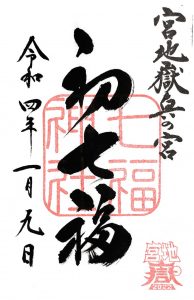 宮地嶽奥の宮
初七福
七福
神社
令和四年一月九日
宮地
嶽
2022